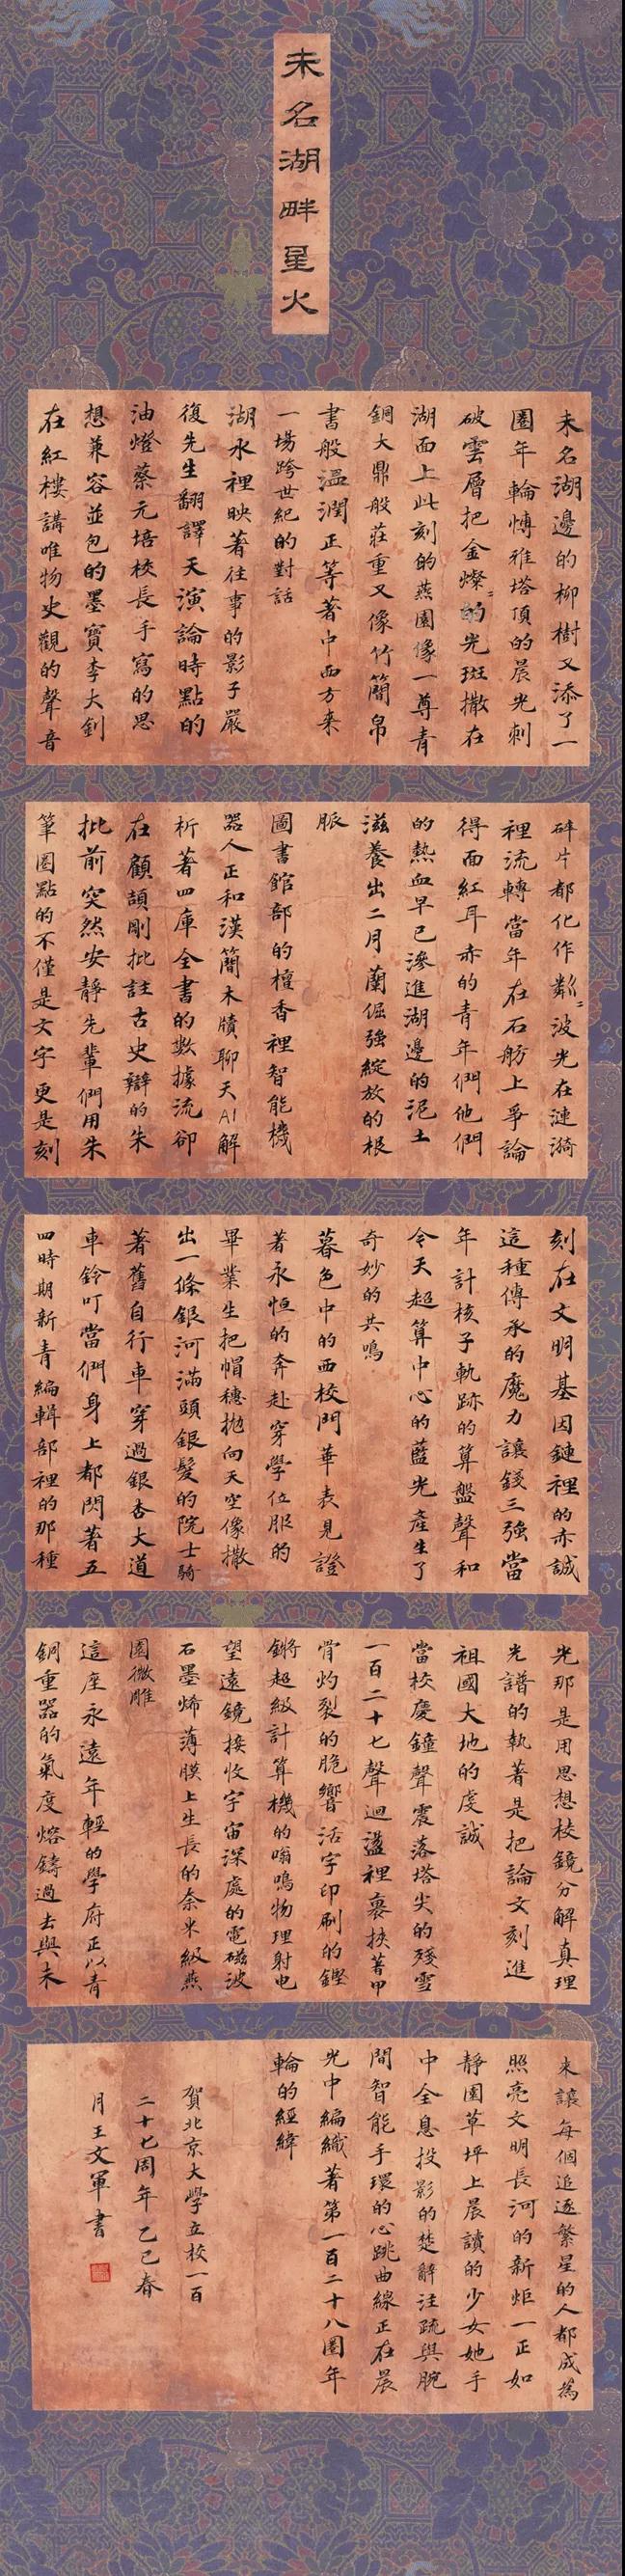 未名湖畔星火
未名湖邊的柳樹又添了一
圈年輪博雅塔頂的晨光刺
破雲層把金燦〻的光斑撒在
湖面上此刻的燕園像一尊青
銅大鼎般莊重又像竹簡帛
書般溫潤正等著中西方来
一場跨世紀的對話
湖水裡映著往事的影子嚴
復先生翻譯天演論時點的
油燈蔡元培校長手寫的思
想兼容並包的墨寶李大釗
在紅樓講唯物史觀的聲音
碎片都化作粼〻波光在漣漪
裡流轉當年在石舫上爭論
得面紅耳赤的青年們他們
的熱血早已滲進湖邊的泥土
滋養出二月蘭倔強綻放的根
脈
圖書館部的檀香裡智能機
器人正和漢簡木牘聊天AI解
析著四庫全書的數據流卻
在顧頡剛批註古史辯的朱
批前突然安靜先輩們用朱
筆圈點的不僅是文字更是刻
刻在文明基因鏈裡的赤誠
這種傳承的魔力讓錢三強當
年計核子軌跡的算盤聲和
今天超算中心的藍光產生了
奇妙的共鳴
暮色中的西校門華表見證
著永恒的奔赴穿學位服的
畢業生把帽穗拋向天空像撒
出一條銀河滿頭銀髮的院士騎
著舊自行車穿過銀杏大道
車鈴叮當們身上都閃著五
四時期新青編輯部裡的那種
光那是用思想棱鏡分解真理
光譜的執著是把論文刻進
祖國大地的虔誠
當校慶鐘聲震落塔尖的殘雪
一百二十七聲迴盪裡裹挾著甲
骨灼裂的脆響活字印刷的鏗
鏘超級計算機的嗡鳴物理射电
望遠鏡接收宇宙深處的電磁波
石墨烯薄膜上生長的奈米級燕
園微雕
這座永遠年輕的學府正以青
銅重器的氣度熔鑄過去與未
来讓每個追逐繁星的人都成為
照亮文明長河的新炬一正如
靜園草坪上晨讀的少女她手
中全息投影的楚辭注疏與腕
間智能手環的心跳曲線正在晨
光中編織著第一百二十八圈年
輪的經緯
賀北京大學立校一百
二十七周年乙巳春
月王文軍書